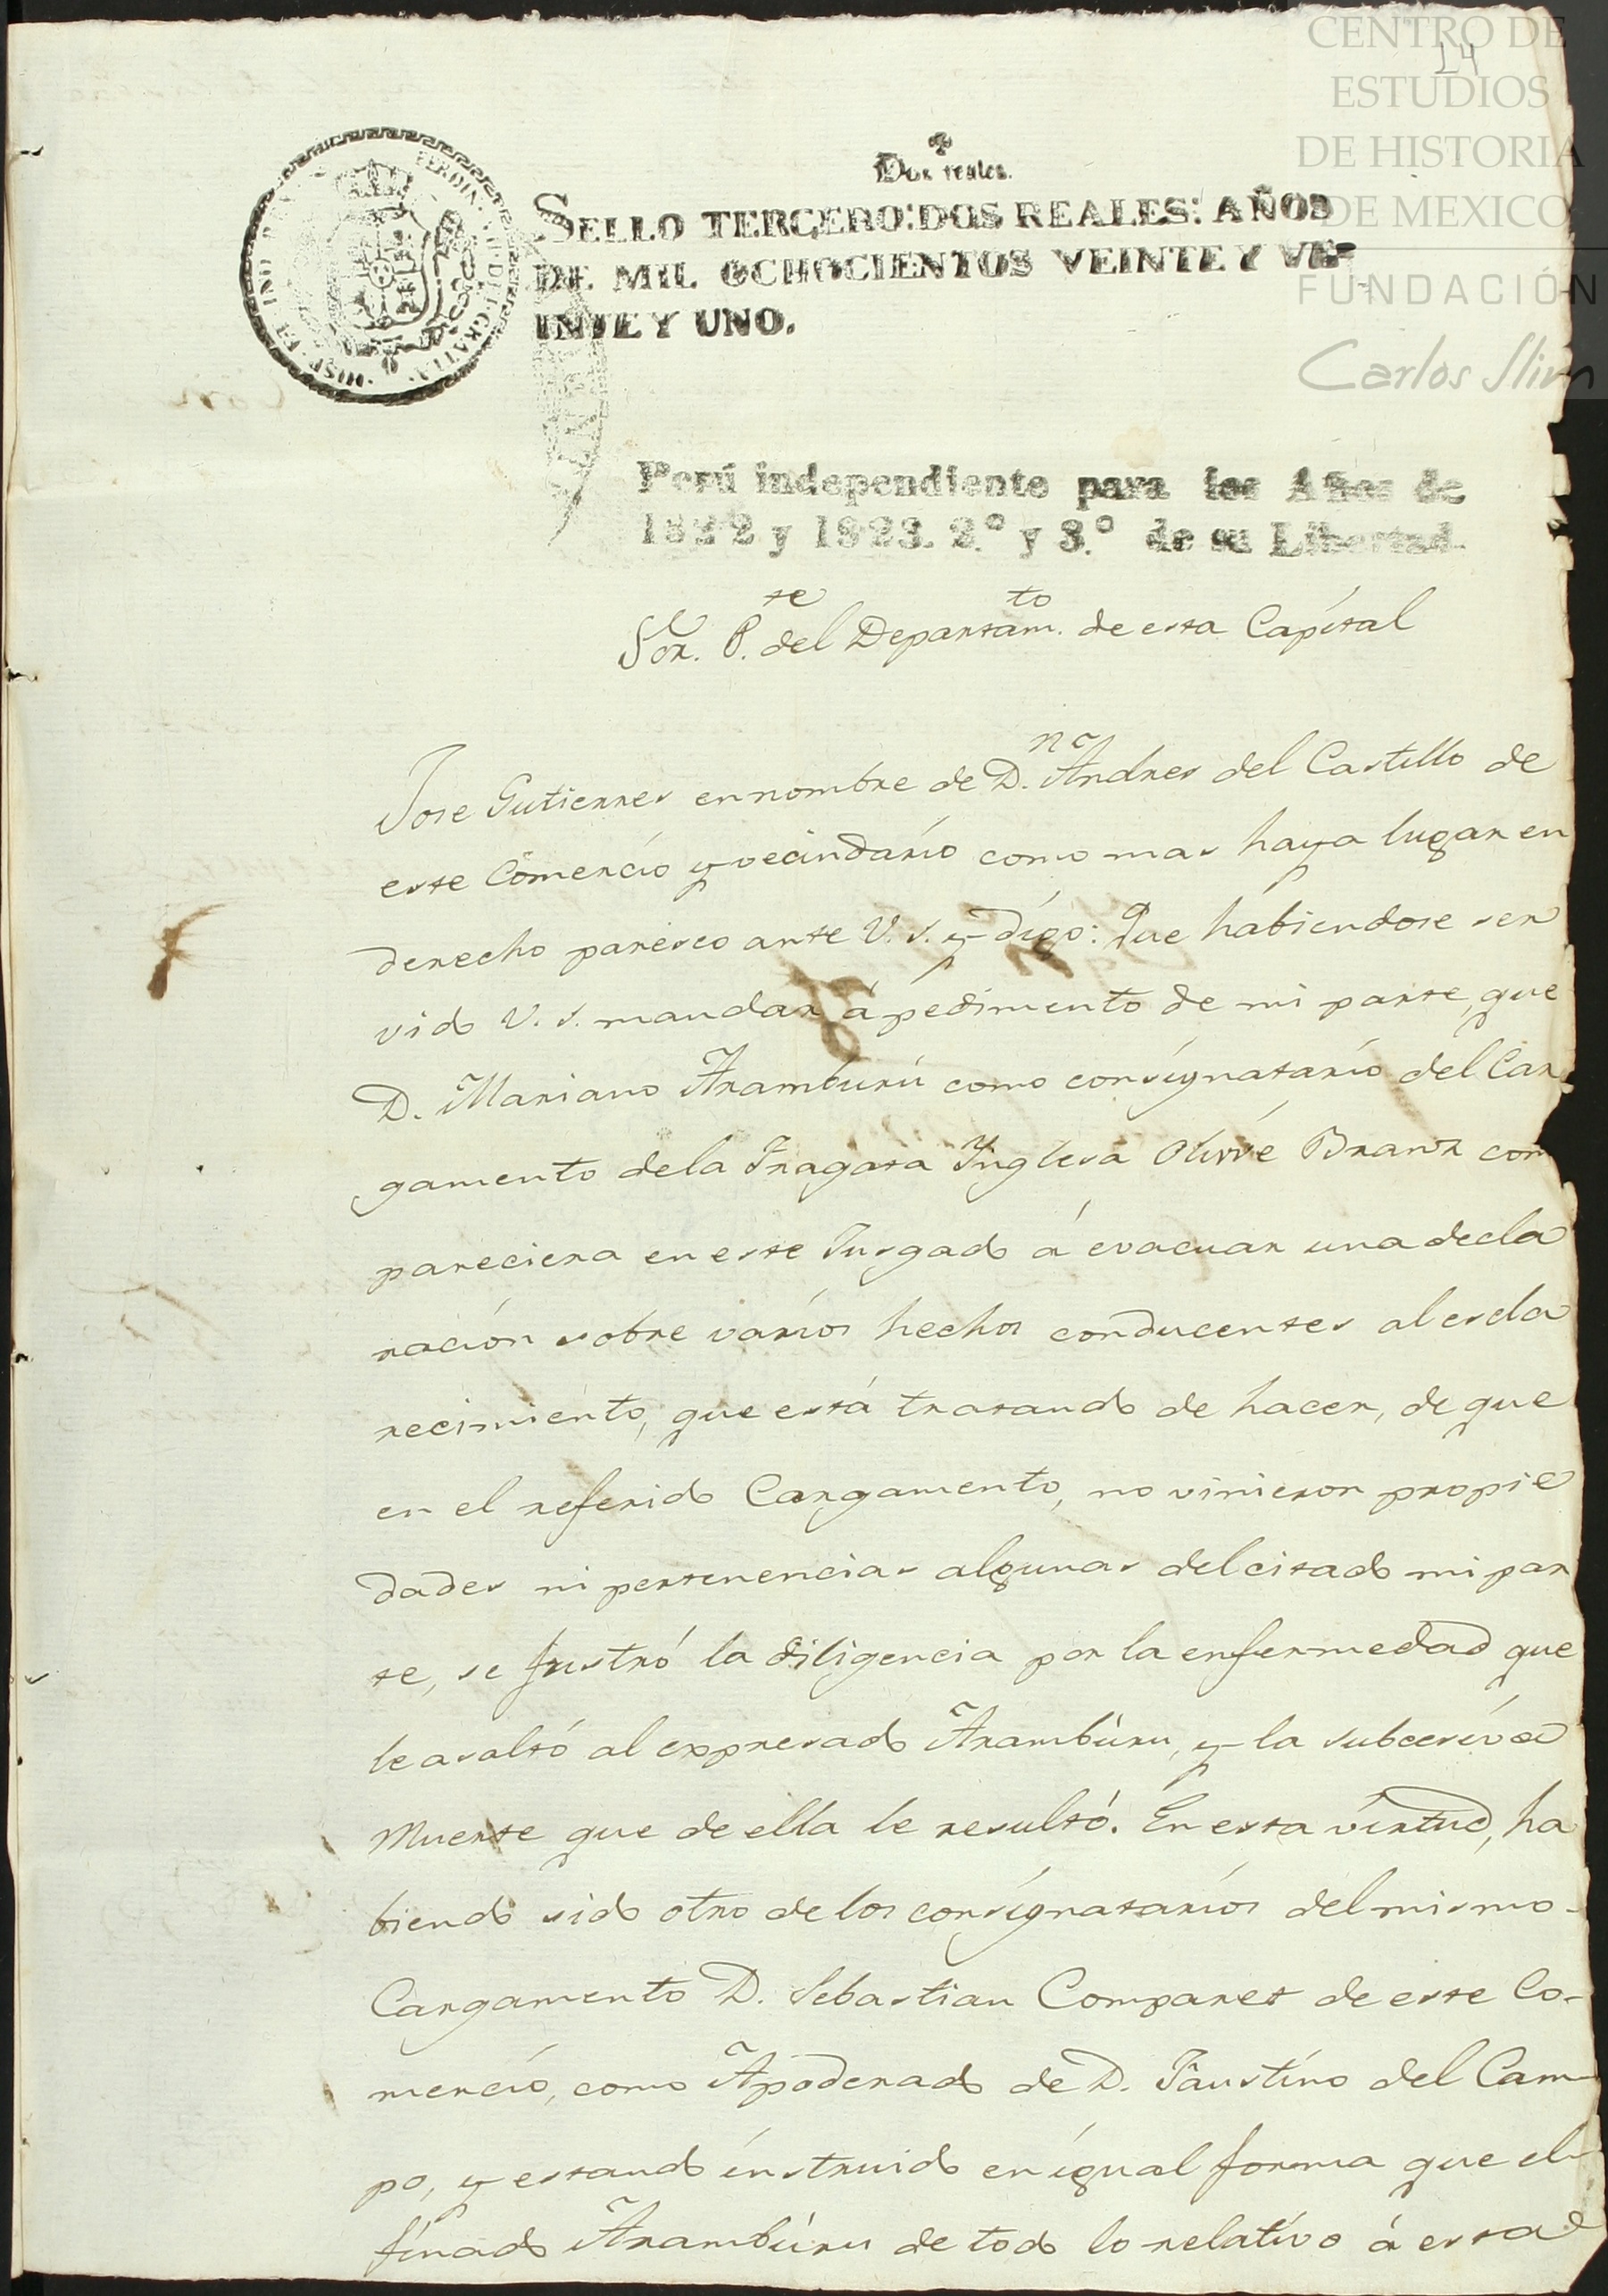 CENTRO DE
ESTUDIOS
DE HISTORIA
DE MEXICO
FUNDACIÓN
Carlos Slim
24
Dos reales.
SELLO TERCERO: DOS REALES: AÑOS
DE MIL OCHOCIENTOS VEINTE Y VE-
INTE Y UNO.
Perú independiente para los Años de
1822 y 1823. 2.º y 3.º de su Libertad.
Sor. P.te del Departam.to de esta Capital
Jose Gutierres en nombre de D.n Andres del Castillo de
este Comercio y vecindario como mas haya lugar en
derecho paresco ante V. S. y digo: Que habiendose ser
vido V. S. mandar á pedimento de mi parte, que
D. Mariano Aramburú como consignatario del Car
gamento dela Fragata Inglesa Olive Branz com
pareciera en este Jusgado á evacuar una decla
racion sobre varios hechos conducentes al escla
recimiento, que está tratando de hacer, de que
en el referido Cargamento, no vinieron propie
dades ni pertenencias algunas del citado mi par
te, se frustró la diligencia por la enfermedad que
le asaltó al expresado Arambúru, y la subcesiva
Muerte que de ella le resultó. En esta virtud, ha
biendo sido otro de los consignatarios del mismo-
Cargamento D. Sebastian Comparet de este Co-
mercio, como Apoderado de D. Faustino del Cam-
po, y estando instruido en igual forma que el
finado Arambúru de todo lo relativo á esta